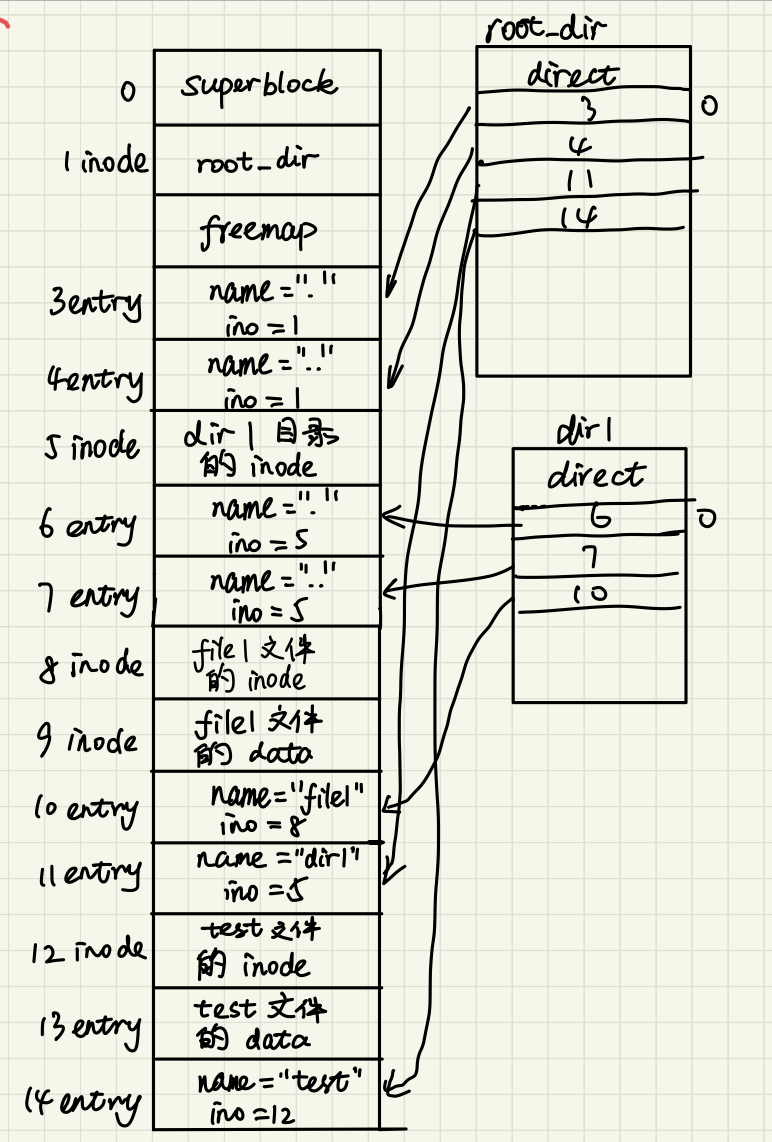 root_dir
direct
3 0
4
11
14
0 superblock
1 inode root_dir
freemap
3 entry name = "."
ino = 1
4 entry name = ".."
ino = 1
5 inode dir1 目录
的 inode
6 entry name = "."
ino = 5
7 entry name = ".."
ino = 5
8 inode file1 文件
的 inode
9 inode file1 文件
的 data
10 entry name = "file1"
ino = 8
11 entry name = "dir1"
ino = 5
12 inode test 文件
的 inode
13 entry test 文件
的 data
14 entry name = "test"
ino = 12
dir1
direct
6 0
7
10